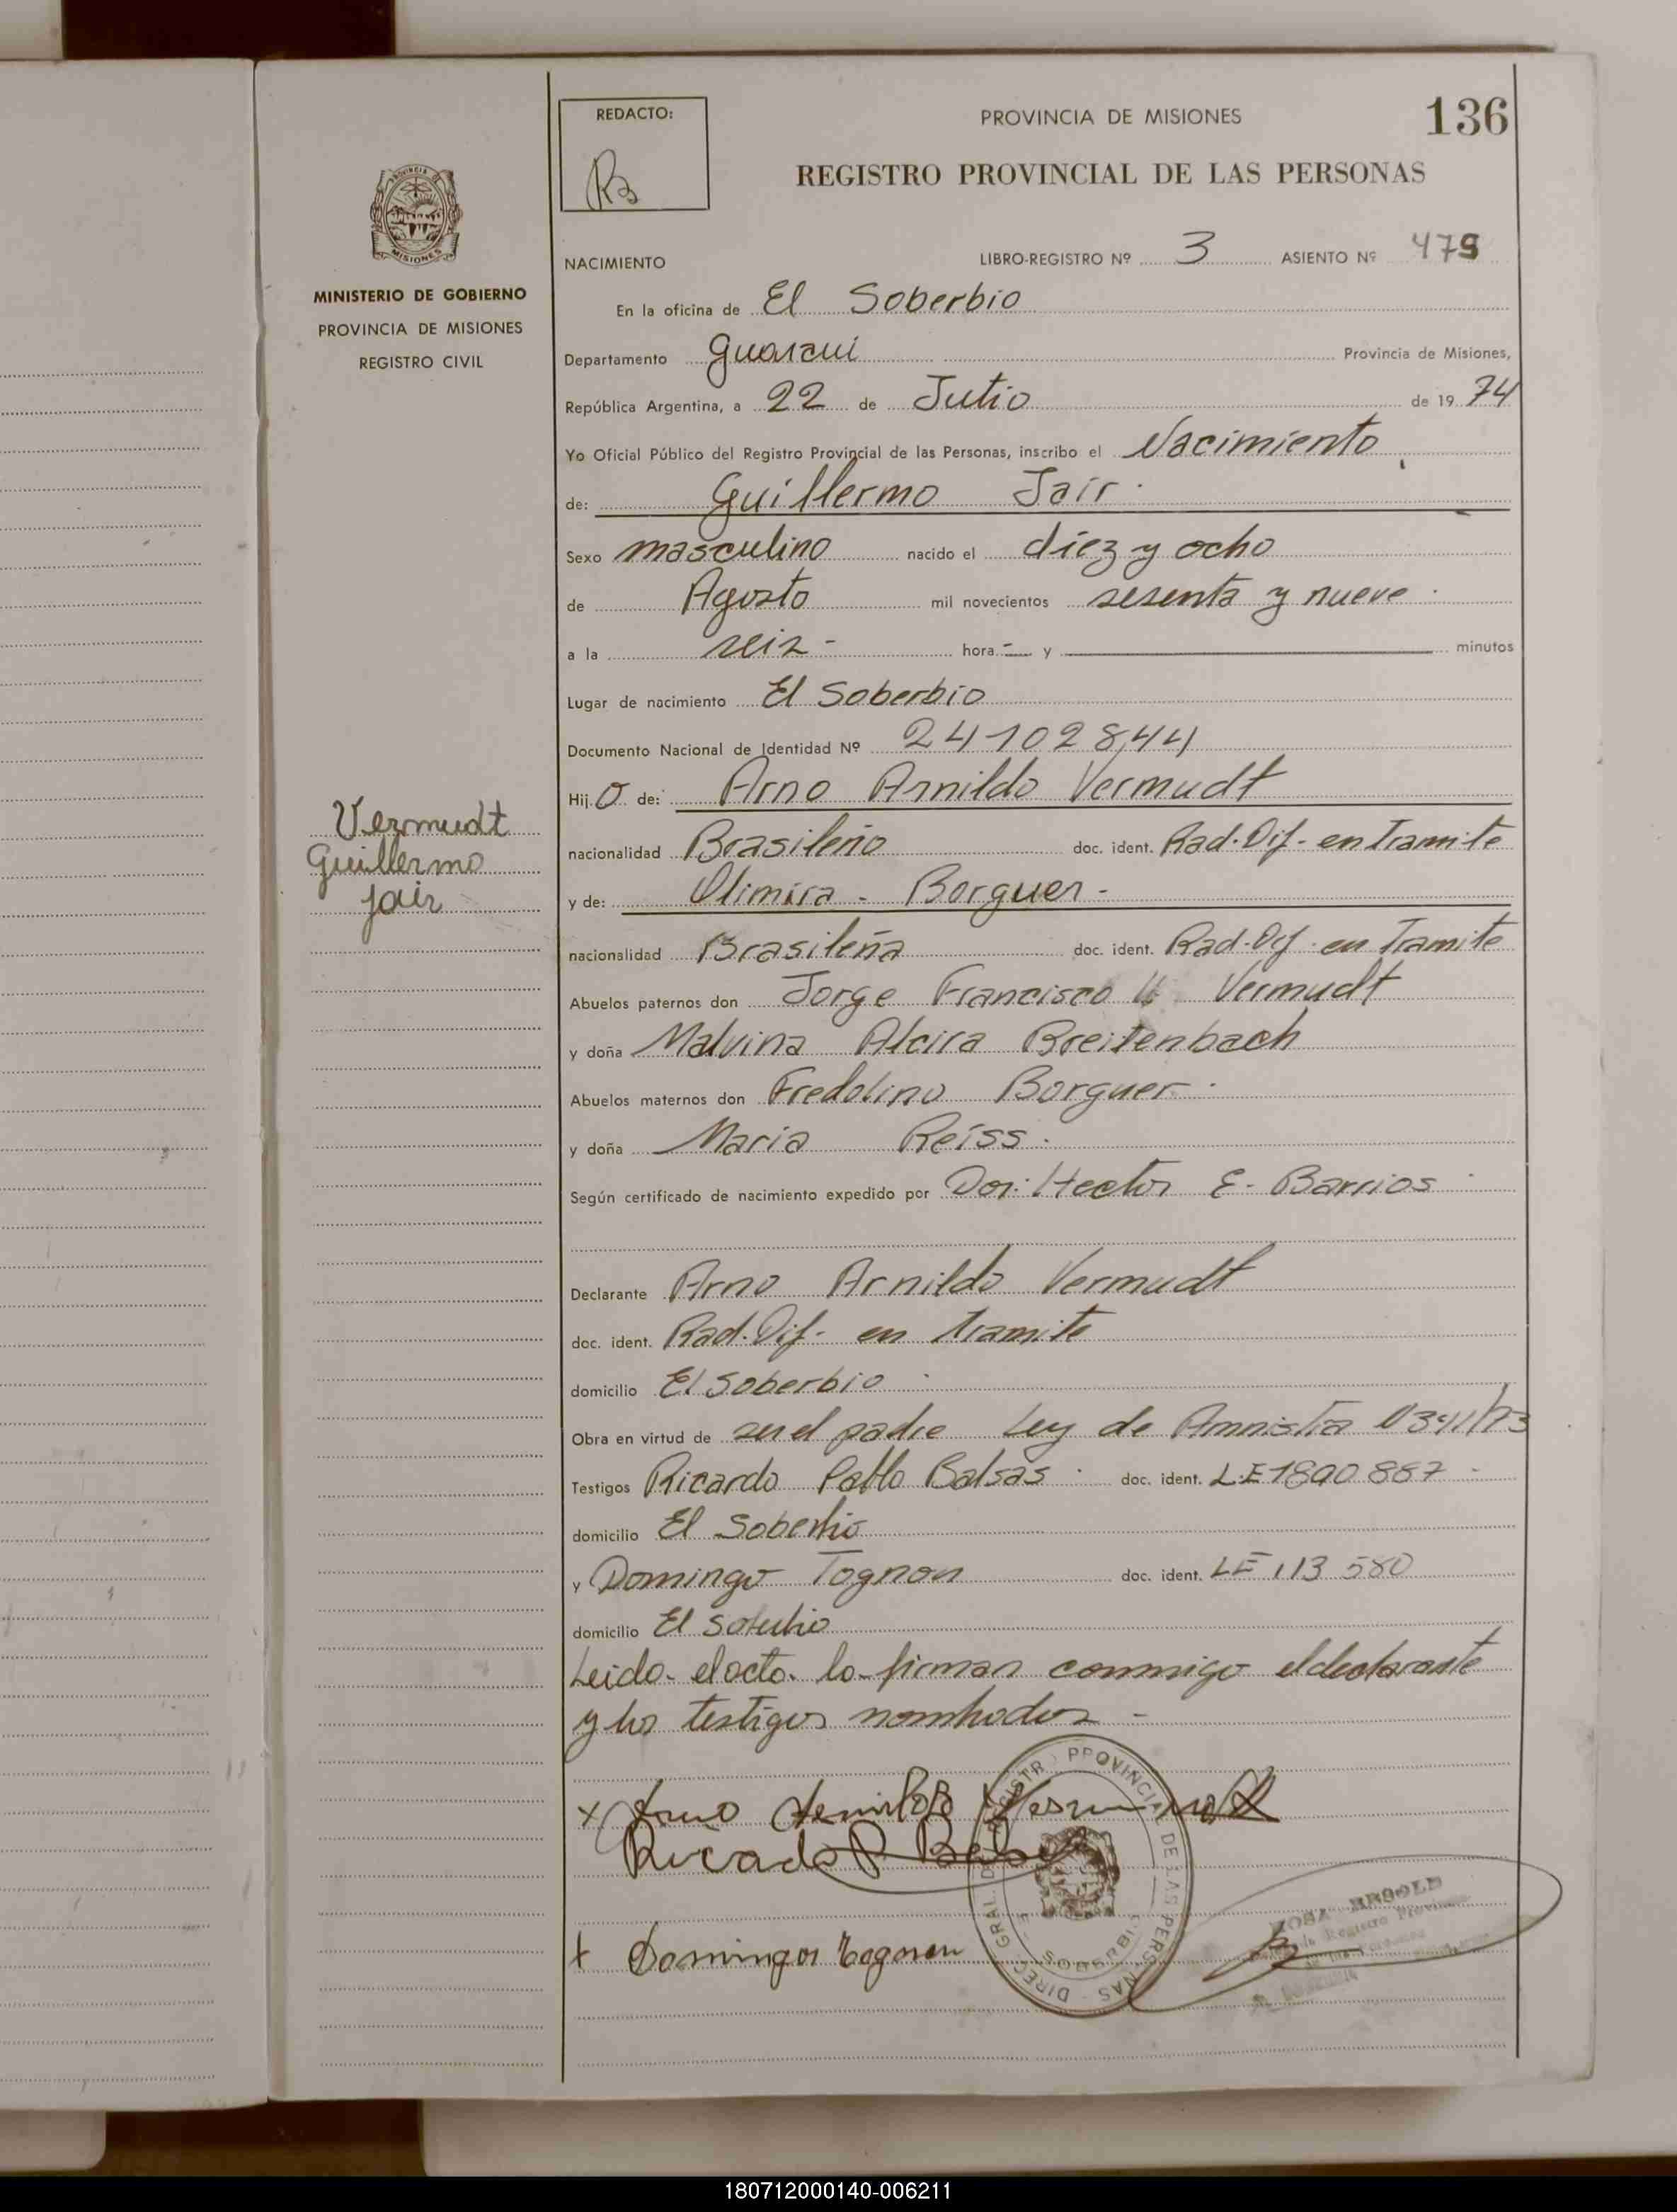 136
REDACTO:
PROVINCIA DE MISIONES
REGISTRO PROVINCIAL DE LAS PERSONAS
PROVINCIA DE
MISIONES
MINISTERIO DE GOBIERNO
PROVINCIA DE MISIONES
REGISTRO CIVIL
NACIMIENTO LIBRO-REGISTRO Nº 3 ASIENTO Nº 479
En la oficina de El Soberbio
Departamento Guarani Provincia de Misiones,
República Argentina, a 22 de Julio de 19 74
Yo Oficial Público del Registro Provincial de las Personas, inscribo el Nacimiento
de: Guillermo Jair
Sexo masculino nacido el diez y ocho
de Agosto mil novecientos sesenta y nueve
a la seis - hora - y minutos
Lugar de nacimiento El Soberbio
Documento Nacional de Identidad Nº 24102844
Hij o de: Arno Arnildo Vermudt
Vermudt
Guillermo
Jair
nacionalidad Brasileño doc. ident. Rad. Dif. en Tramite
y de: Olimira - Borguer -
nacionalidad Brasileña doc. ident. Rad. Dif. en Tramite
Abuelos paternos don Jorge Francisco Vermudt
y doña Malvina Alcira Breitenbach
Abuelos maternos don Fredolino Borguer
y doña Maria Reiss.
Según certificado de nacimiento expedido por Hector E. Barrios
Declarante Arno Arnildo Vermudt
doc. ident. Rad. Dif. en Tramite
domicilio El Soberbio
Obra en virtud de ser el padre Ley de Amnistia
Testigos Ricardo Pablo Balsas doc. ident. L.E 1890.887 -
domicilio El Soberbio
y Domingo Tognon doc. ident. LE 113 580
domicilio El Soberbio
Leido el acto lo firman conmigo el declarante
y los testigos nombrados -
x Arno Arnildo Vermudt
Ricardo P Balsas
x Domingo Tognon
DIREC. GRAL. DEL REGISTR. PROVINCIAL DE LAS PERSONAS
SOBERBIO
180712000140-006211